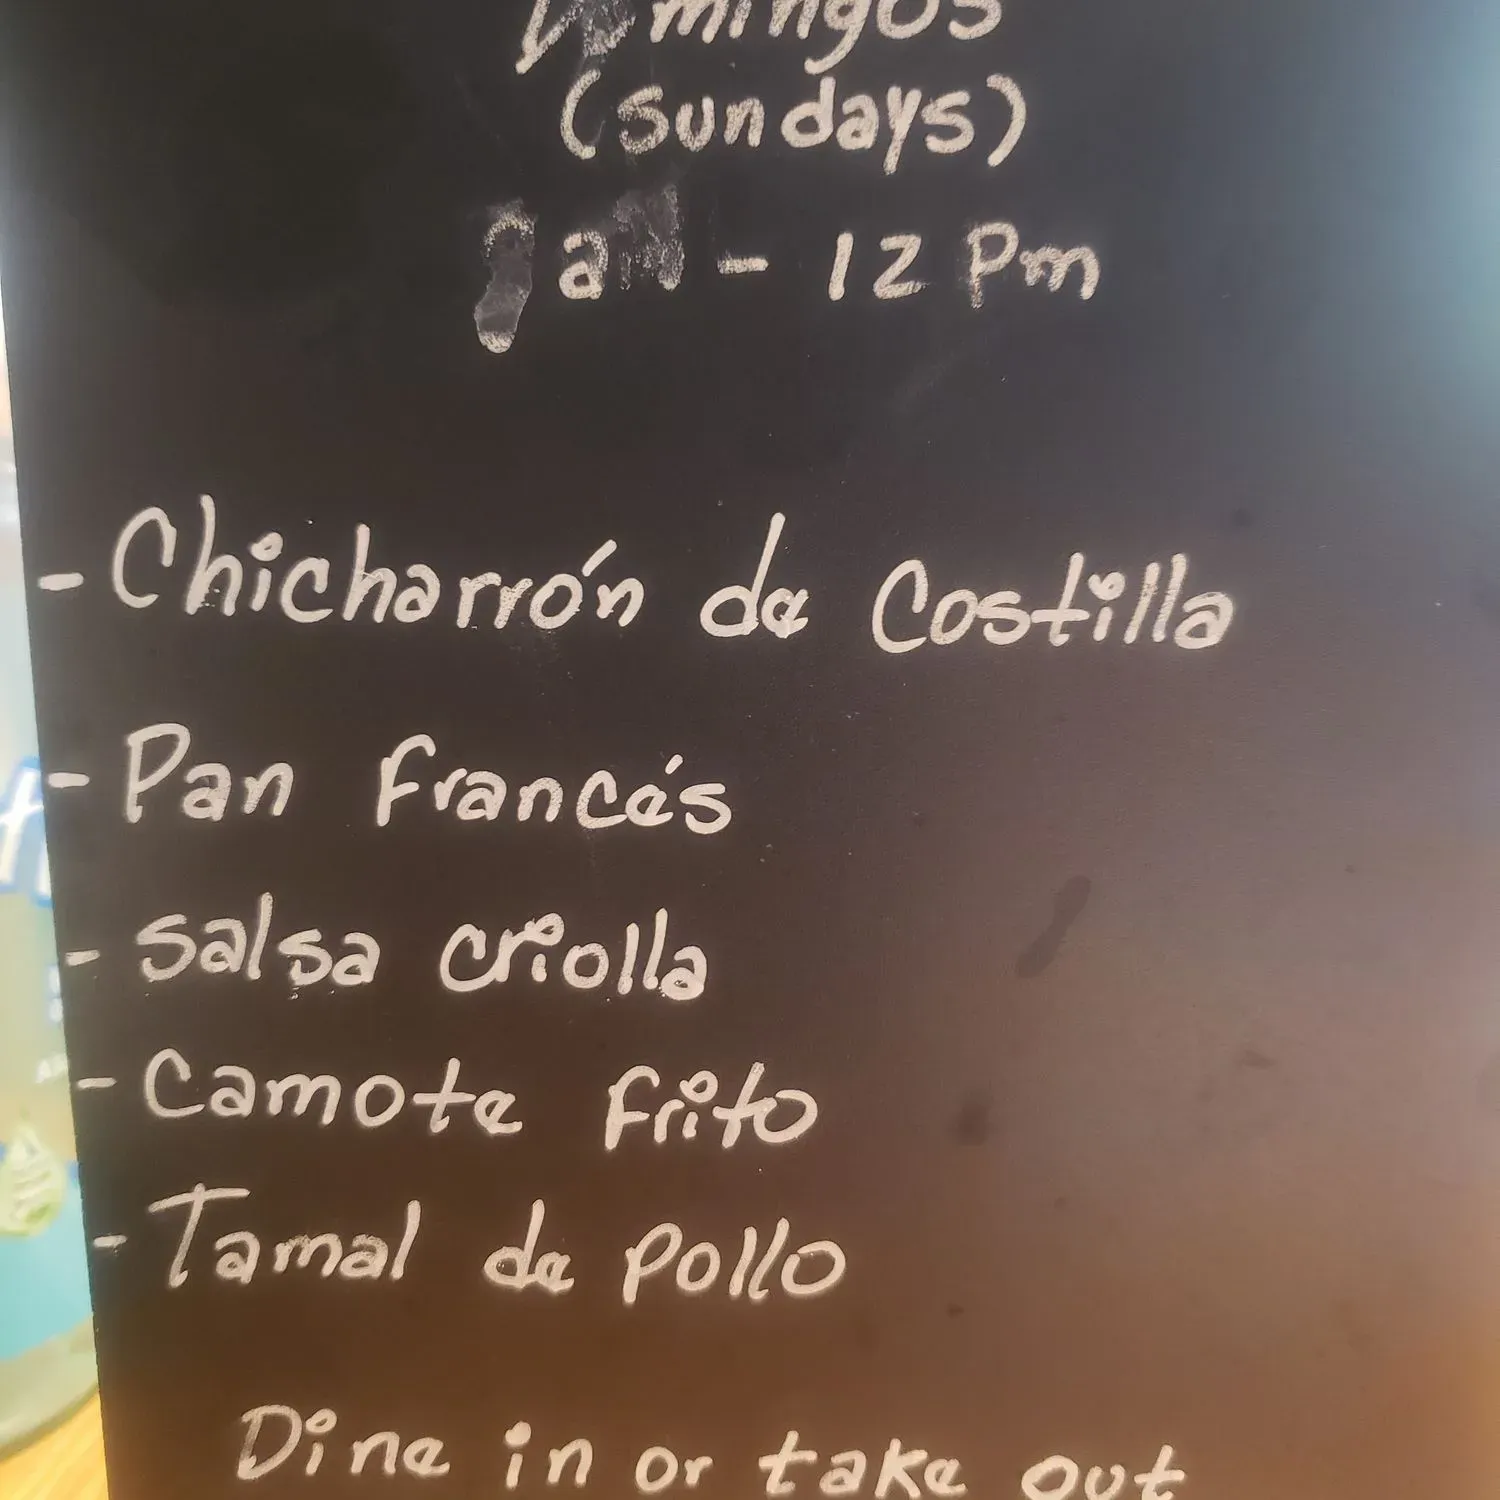 Domingos
(sundays)
am - 12 Pm
- Chicharrón de Costilla
- Pan francés
- salsa criolla
- Camote frito
- Tamal de pollo
Dine in or take out